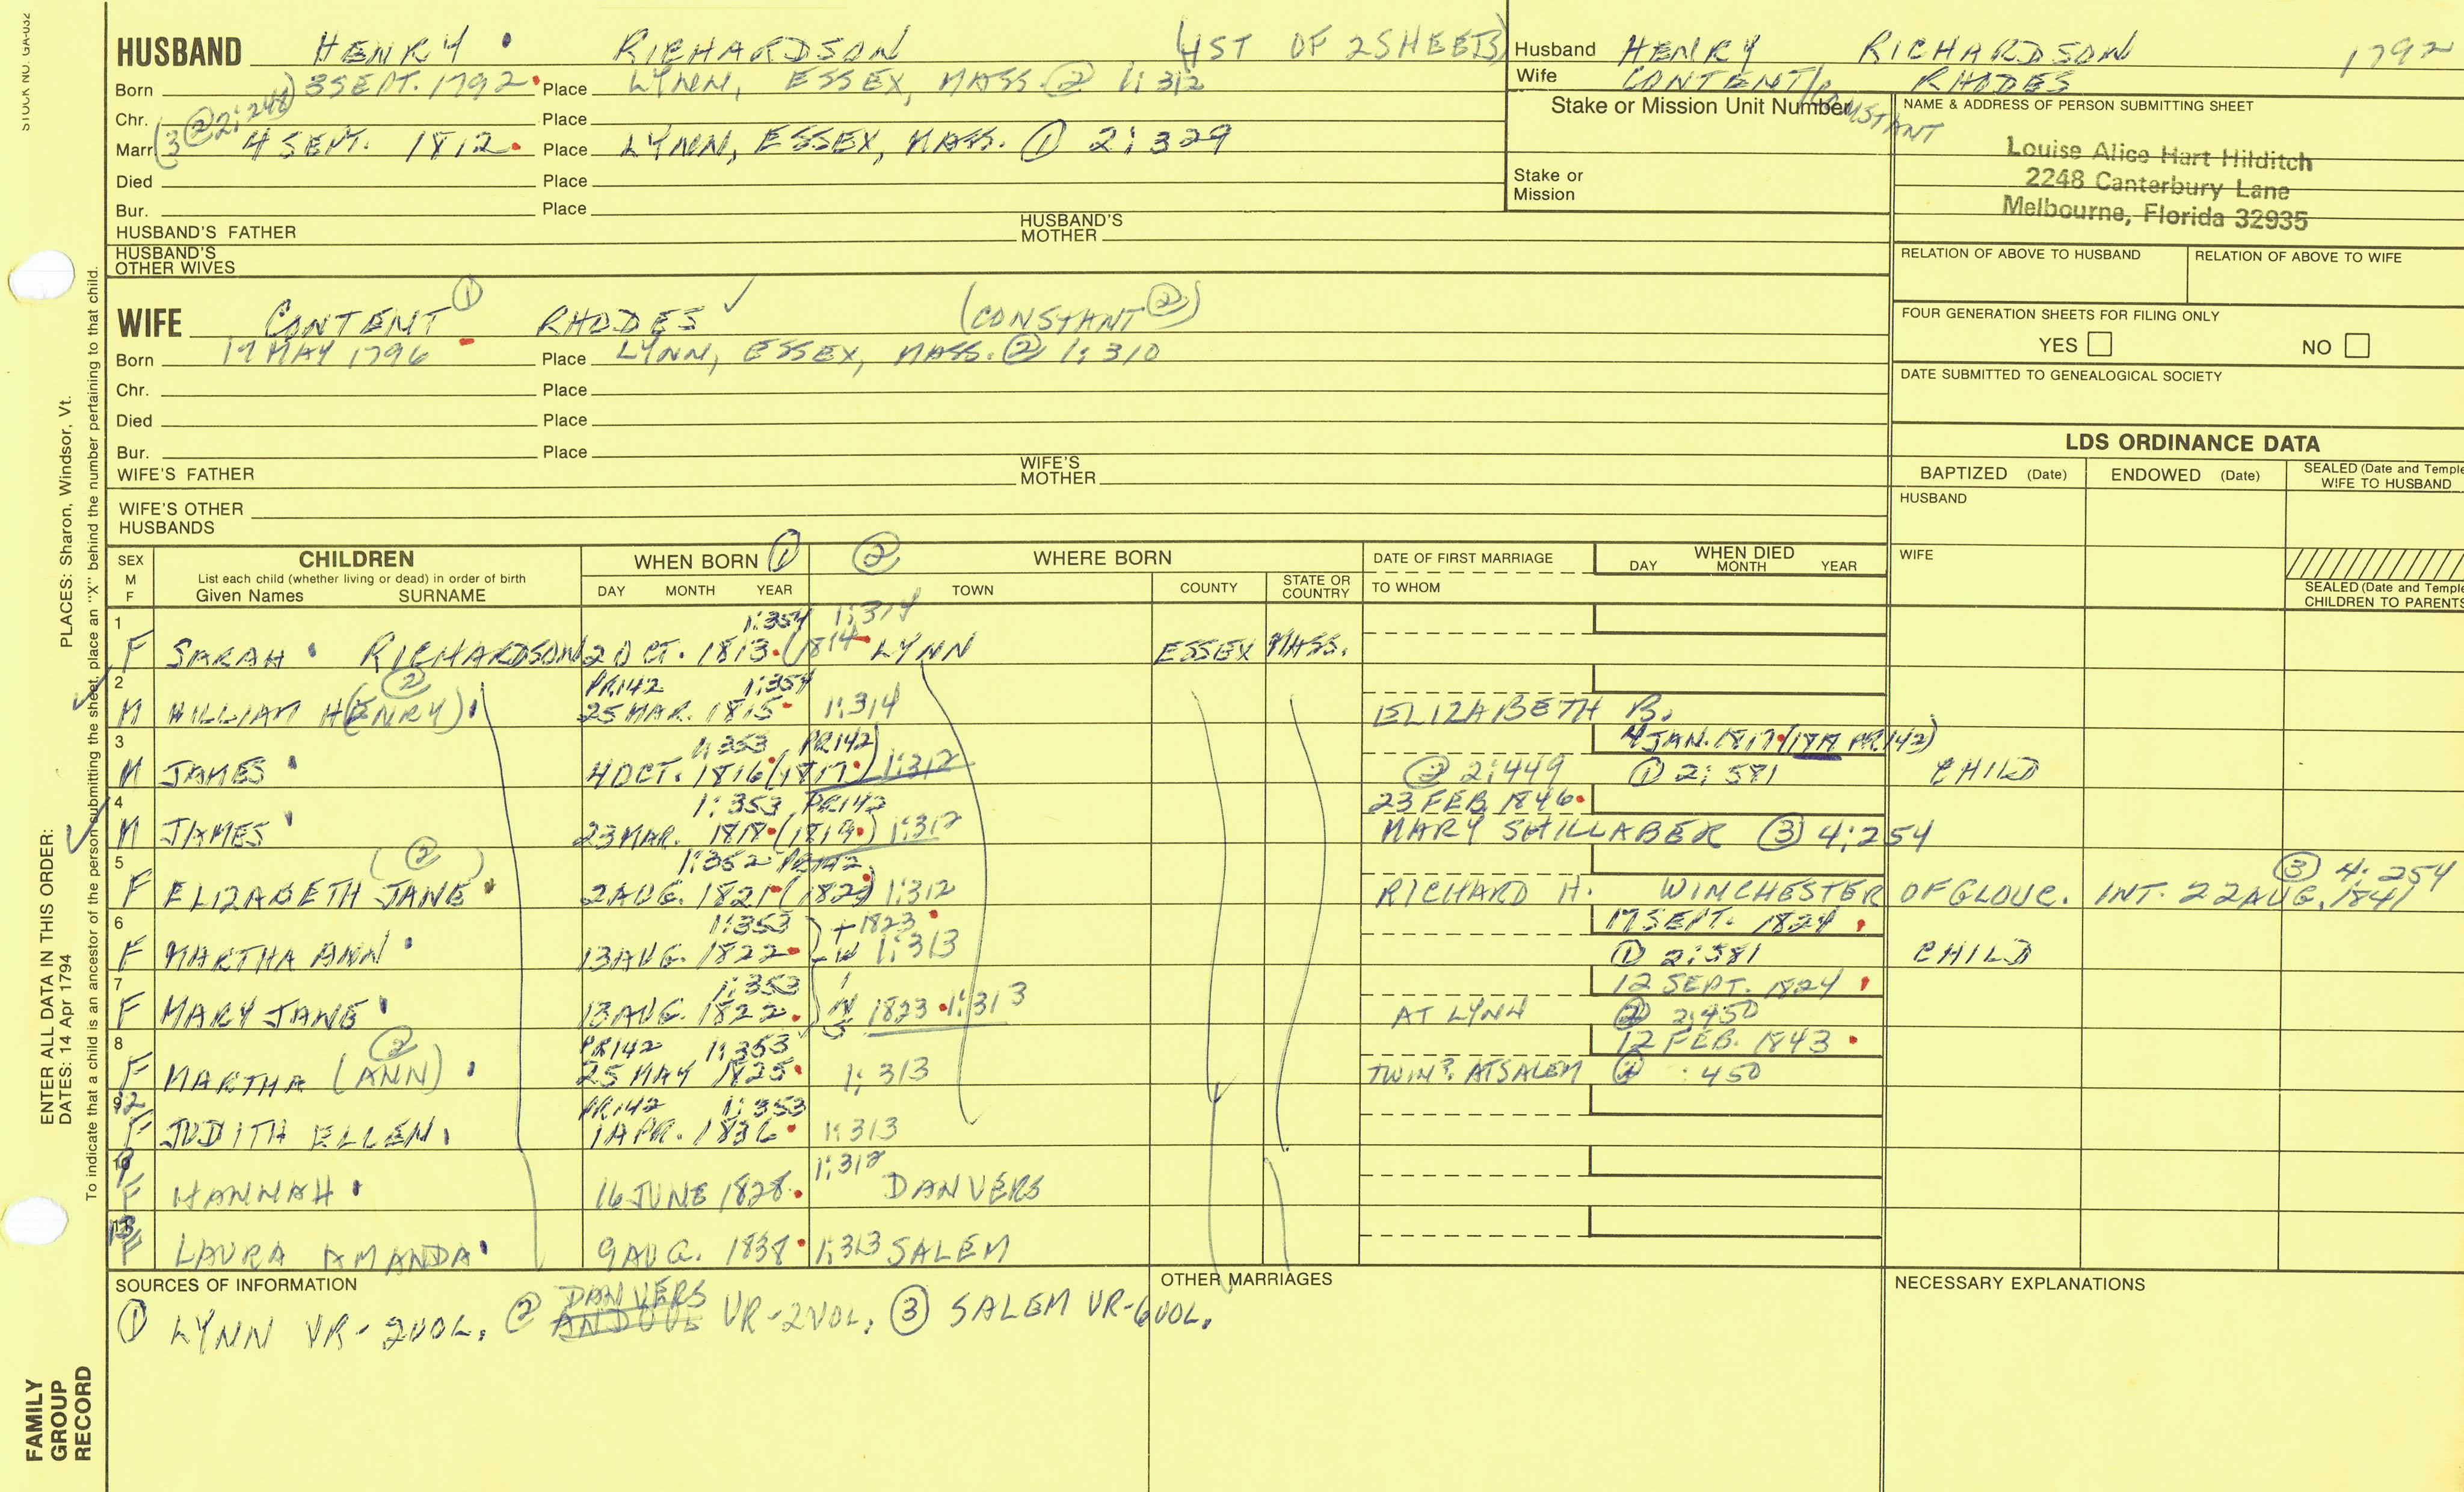 STOCK NO. GA-032
HUSBAND HENRY RICHARDSON (1ST OF 2 SHEETS)
Born 3 SEPT. 1792 Place LYNN, ESSEX, MASS. ② 1:312
Chr. Place
(3 @ 2:248)
Marr. 4 SEPT. 1812 Place LYNN, ESSEX, MASS. ① 2:329
Died Place
Bur. Place
HUSBAND'S FATHER HUSBAND'S MOTHER
HUSBAND'S OTHER WIVES
Husband HENRY RICHARDSON 1792
Wife CONTENT/CONSTANT RHODES
Stake or Mission Unit Number
Stake or Mission
NAME & ADDRESS OF PERSON SUBMITTING SHEET
Louise Alice Hart Hilditch
2248 Canterbury Lane
Melbourne, Florida 32935
RELATION OF ABOVE TO HUSBAND RELATION OF ABOVE TO WIFE
FOUR GENERATION SHEETS FOR FILING ONLY
YES NO
DATE SUBMITTED TO GENEALOGICAL SOCIETY
WIFE CONTENT ① RHODES ✓ (CONSTANT ②)
Born 17 MAY 1796 Place LYNN, ESSEX, MASS. ② 1:310
Chr. Place
Died Place
Bur. Place
WIFE'S FATHER WIFE'S MOTHER
WIFE'S OTHER HUSBANDS
LDS ORDINANCE DATA
BAPTIZED (Date) ENDOWED (Date) SEALED (Date and Temple WIFE TO HUSBAND
HUSBAND
WIFE
SEALED (Date and Temple CHILDREN TO PARENTS
SEX M F CHILDREN
List each child (whether living or dead) in order of birth
Given Names SURNAME
WHEN BORN ① DAY MONTH YEAR
② WHERE BORN TOWN COUNTY STATE OR COUNTRY
DATE OF FIRST MARRIAGE TO WHOM
WHEN DIED DAY MONTH YEAR
1 1:354 1:314
F SARAH RICHARDSON 2 OCT. 1813 (1814 LYNN ESSEX MASS.
2 ② PR142 1:354
M WILLIAM H(ENRY) 25 MAR. 1815 1:314 ELIZABETH B.
3 1:353, PR142) 4 JAN. 1817 (PR142)
M JAMES 4 OCT. 1816 (1817) 1:312 ② 2:449 ① 2:581 CHILD
4 1:353, PR142 23 FEB. 1846
M JAMES 23 MAR. 1818 (1819) 1:312 MARY SHILLABER ③ 4:254
5 (②) 1:352 PR142 ③ 4:254
F ELIZABETH JANE 2 AUG. 1821 (1822) 1:312 RICHARD H. WINCHESTER OF GLOUC. INT. 22 AUG. 1841
6 1:353 + 1823 17 SEPT. 1824
F MARTHA ANN 13 AUG. 1822 1:313 ① 2:581 CHILD
7 1:353 12 SEPT. 1824
F MARY JANE 13 AUG. 1822 1823 1:313 AT LYNN ② 2:450
8 ② PR142 1:353 12 FEB. 1843
F MARTHA (ANN) 25 MAY 1825 1:313 TWIN? AT SALEM ② :450
12 PR142 1:353
F JUDITH ELLEN 1 APR. 1836 1:313
1:312
F HANNAH 16 JUNE 1828 DANVERS
13
F LAURA AMANDA 9 AUG. 1838 1:313 SALEM
SOURCES OF INFORMATION
① LYNN VR-2VOL. ② DANVERS VR-2VOL. ③ SALEM VR-6VOL.
OTHER MARRIAGES
NECESSARY EXPLANATIONS
PLACES: Sharon, Windsor, Vt.
To indicate that a child is an ancestor of the person submitting the sheet, place an "X" behind the number pertaining to that child.
ENTER ALL DATA IN THIS ORDER:
DATES: 14 Apr 1794
FAMILY
GROUP
RECORD